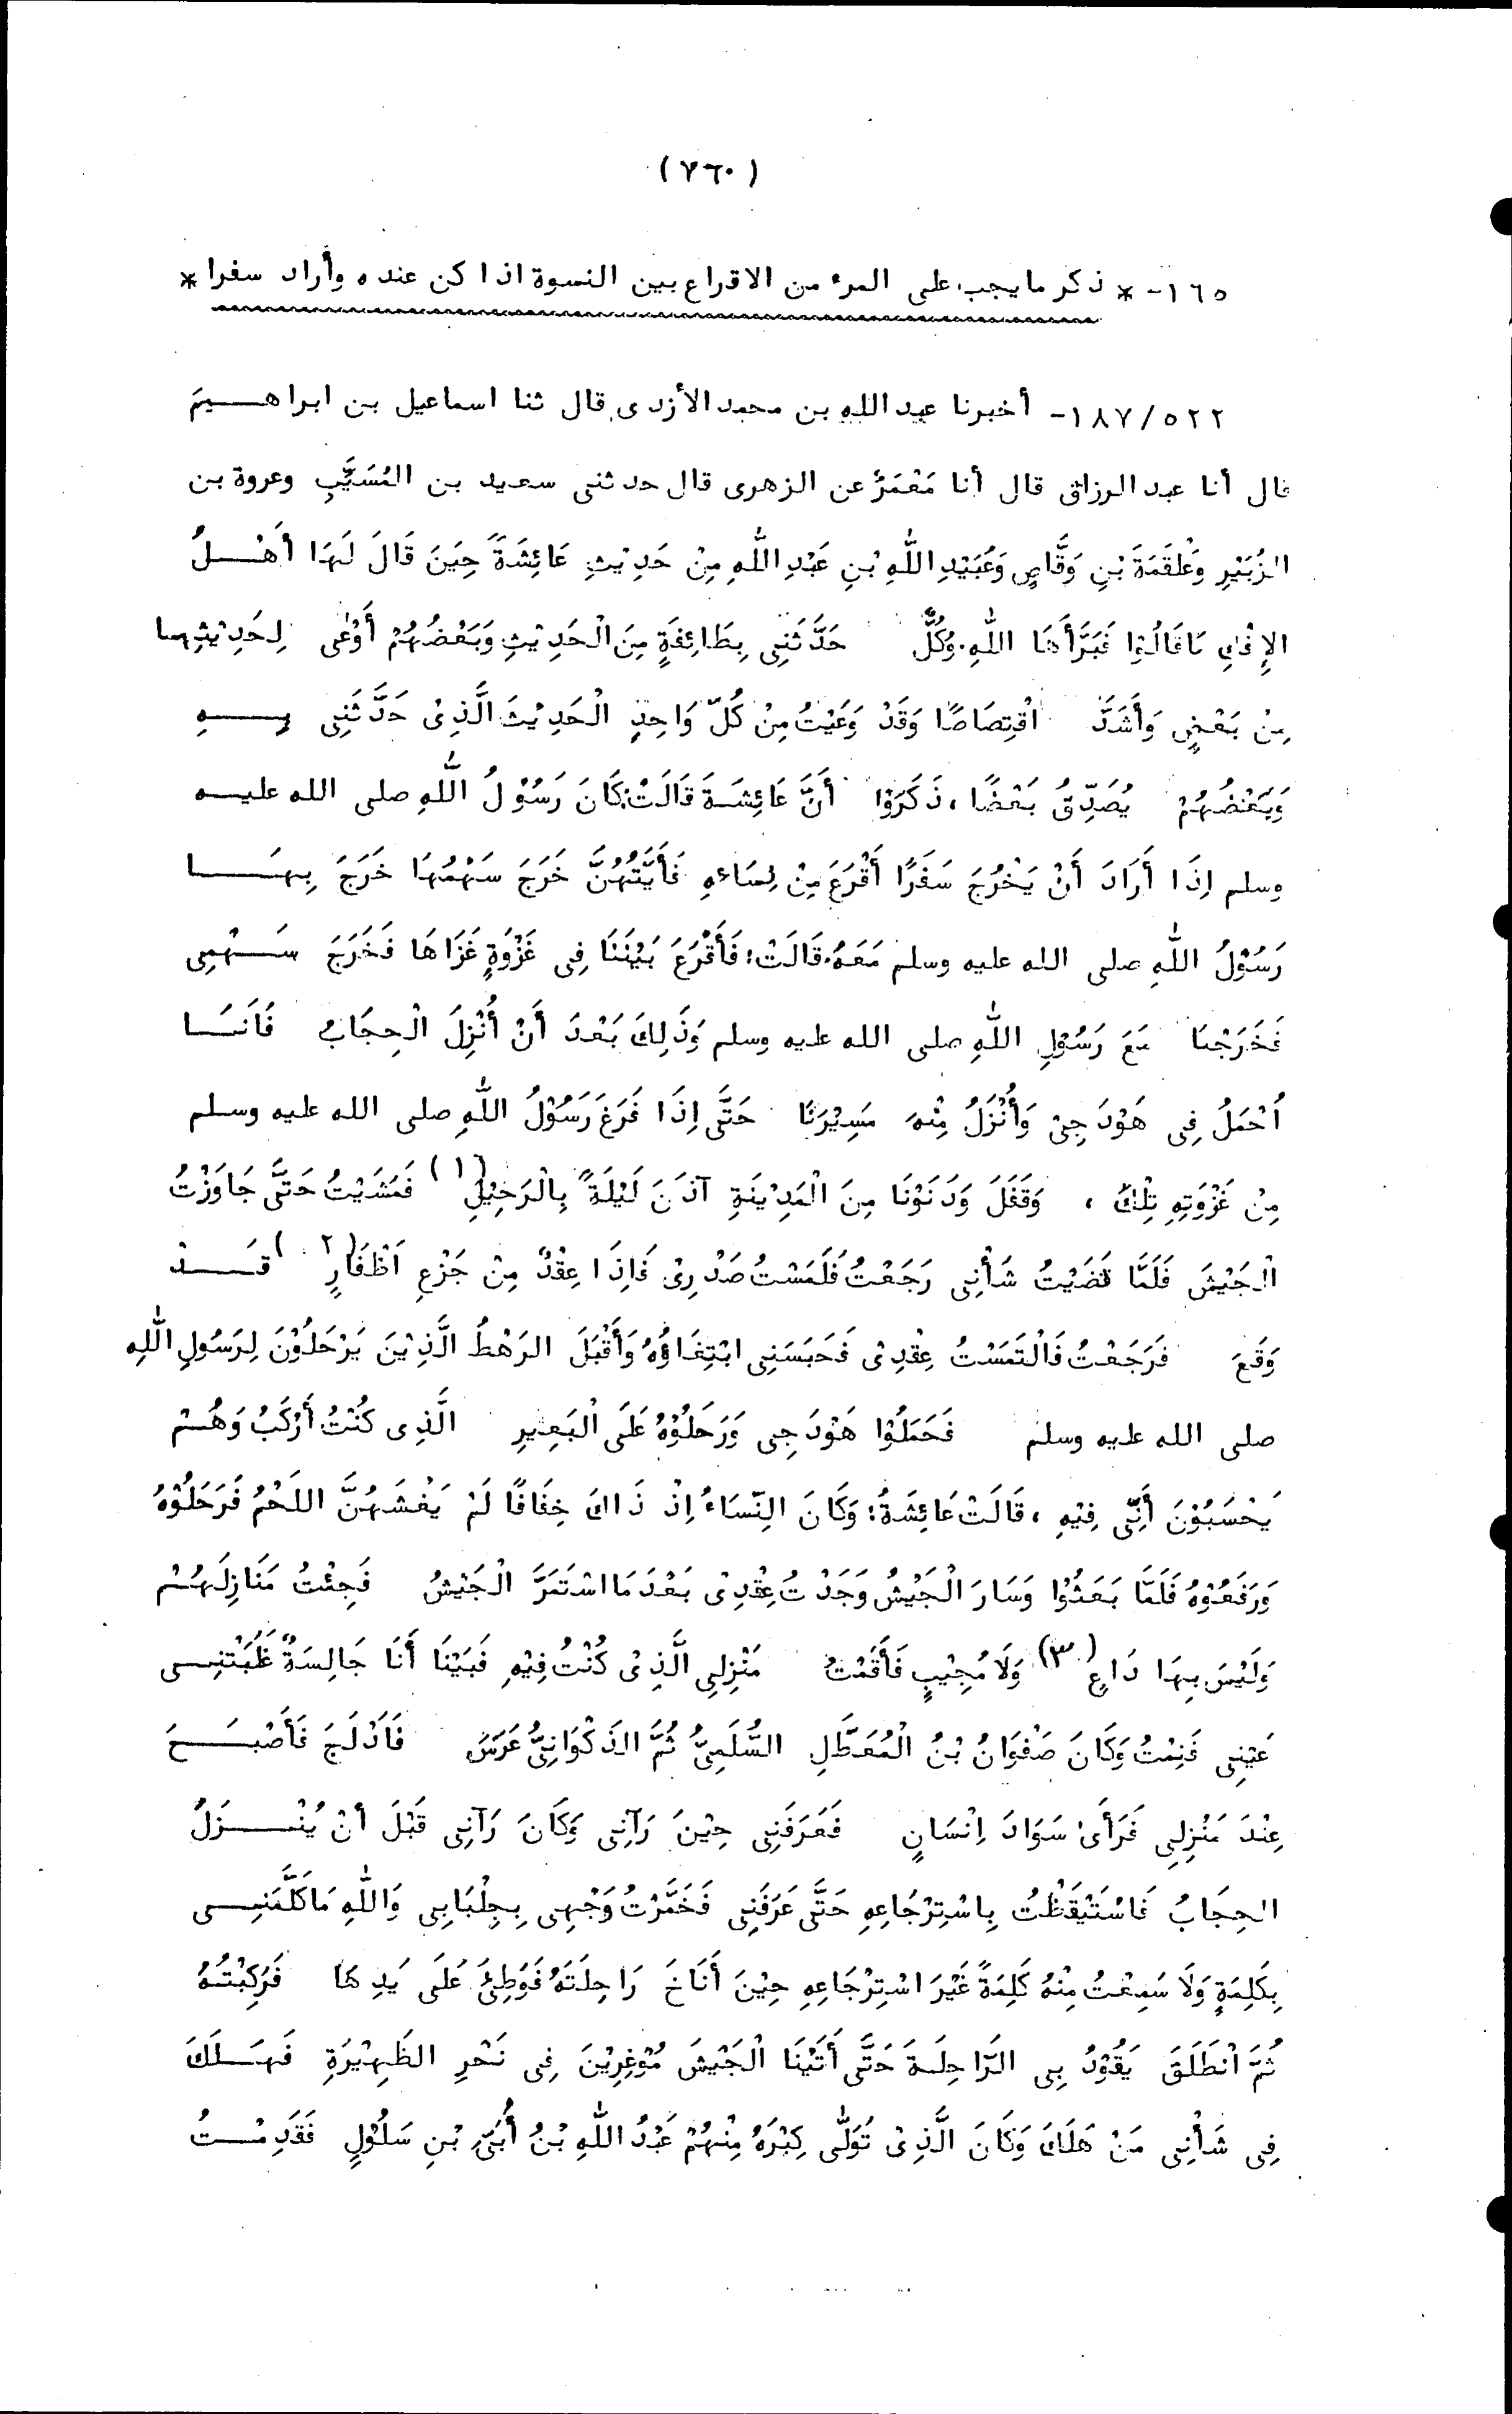 (٧٦٠)
١٦٥- * ذكر مايجب على المرء من الاقراع بين النسوة اذا كن عنده وأراد سفرا *
١٨٧/٥٢٢- أخبرنا عبد الله بن محمد الأزدى قال ثنا اسماعيل بن ابراهيمَ
قال أنا عبد الرزاق قال أنا مَعْمَرٌ عن الزهرى قال حدثنى سعيد بن المُسَيَّبِ وعروة بن
الزُبَيْرِ وَعَلْقَمَةَ بْنِ وَقَّاصٍ وَعُبَيْدِ اللّٰهِ بْنِ عَبْدِ اللّٰهِ مِنْ حَدِيْثِ عَائِشَةَ حِيَنَ قَالَ لَهَا أَهْلُ
الإِفْكِ مَا قَالُوْا فَبَرَّأَهَا اللّٰهِ. وَكُلٌّ حَدَّثَنِى بِطَائِفَةٍ مِنَ الْحَدِيْثِ وَبَعْضُهُمْ أَوْعٰى لِحَدِيْثِها
مِنْ بَعْضٍ وَأَشَدَّ اقْتِصَاصًا وَقَدْ وَعَيْتُ مِنْ كُلّ وَاحِدٍ الْحَدِيْثَ الَّذِىْ حَدَّثَنِى بِهِ
وَبَعْضُهُمْ يُصَدِّقُ بَعْضًا، ذَكَرَوْا أَنَّ عَائِشَةَ قَالَتْ: كَانَ رَسُوْلُ اللّٰهِ صلى الله عليه
وسلم اِذَا أَرَادَ أَنْ يَخْرُجَ سَفَرًا أَقْرَعَ مِنْ نِسَاءهِ فَأَيَّتُهُنَّ خَرَجَ سَهْمُهَا خَرَجَ بِهَا
رَسُوْلُ اللّٰهِ صلى الله عليه وسلم مَعَهُ. قَالَتْ: فَأَقْرَعَ بَيْنَنَا فِى غَزْوَةٍ غَزَاهَا فَخَرَجَ سَهْمِى
فَخَرَجْنَا مَعَ رَسُوْلِ اللّٰهِ صلى الله عليه وسلم وَذَلِكَ بَعْدَ أَنْ أُنْزِلَ الْحِجَابُ فَأَنَا
أُحْمَلُ فِى هَوْدَجِىْ وَأُنْزَلُ مِنْهَ مَسِيْرَنَا حَتَّى اِذَا فَرَغَ رَسُوْلُ اللّٰهِ صلى الله عليه وسلم
مِنْ غَزْوَتِهِ تِلْكَ، وَقَفَلَ وَدَنَوْنَا مِنَ الْمَدِيْنَةِ آذَنَ لَيْلَةً بِالْرَحِيْلِ (١) فَمَشَيْتُ حَتَّى جَاوَزْتُ
الْجَيْشَ فَلَمَّا قَضَيْتُ شَأْنِى رَجَعْتُ فَلَمَسْتُ صَدْرِىْ فَاِذَا عِقْدٌ مِنْ جَزْعِ اَظْفَارٍ (٢) قَدْ
وَقَعَ فَرَجَعْتُ فَالْتَمَسْتُ عِقْدِىْ فَحَبَسَنِى ابْتِغَاؤُهُ وَأَقْبَلَ الرَهْطُ الَّذِيْنَ يَرْحَلُوْنَ لِرَسُولِ اللّٰهِ
صلى الله عليه وسلم فَحَمَلُوْا هَوْدَجِى وَرَحَلُوْهُ عَلَى الْبَعِيرِ الَّذِى كُنْتُ أَرْكَبُ وَهُمْ
يَحْسَبُوْنَ أَنِّى فِيْهِ، قَالَتْ عَائِشَةُ: وَكَانَ النِّسَاءُ اِذْ ذَاكَ خِفَافًا لَمْ يَغْشَهُنَّ اللَحْمُ فَرَحَلُوْهُ
وَرَفَعُوْهُ فَلَمَّا بَعَثُوْا وَسَارَ الْجَيْشُ وَجَدْتُ عِقْدِىْ بَعْدَ مَا اسْتَمَرَّ الْجَيْشُ فَجِئْتُ مَنَازِلَهُمْ
وَلَيْسَ بِهَا دَاعٍ (٣) وَلَا مُجِيْبٍ فَأَقَمْتُ مَنْزِلِى الَّذِىْ كُنْتُ فِيْهِ فَبَيْنَا أَنَا جَالِسَةٌ غَلَبَتْنِى
عَيْنِى فَنِمْتُ وَكَانَ صَفْوَانُ بْنُ الْمُعَطَّلِ السُّلَمِىُّ ثُمَّ الذَكْوَانِىُّ عَرَسَ فَأَدْلَجَ فَأَصْبَحَ
عِنْدَ مَنْزِلِى فَرَأَىٰ سَوَادَ اِنْسَانٍ فَعَرَفَنِى حِيْنَ رَآنِى وَكَانَ رَآنِى قَبْلَ أَنْ يُنْزَلَ
الحِجَابُ فَاسْتَيْقَظْتُ بِاسْتِرْجَاعِهِ حَتَّى عَرَفَنِى فَخَمَّرْتُ وَجْهِى بِجِلْبَابِى وَاللّٰهِ مَا كَلَّمَنِى
بِكَلِمَةٍ وَلَا سَمِعْتُ مِنْهُ كَلِمَةً غَيْرَ اسْتِرْجَاعِهِ حِيْنَ أَنَاخَ رَاحِلَتَهُ فَوَطِئَ عَلَى يَدِهَا فَرَكِبْتُهُ
ثُمَّ انْطَلَقَ يَقُوْدُ بِى الرَّاحِلَةَ حَتَّى أَتَيْنَا الْجَيْشَ مُوْغِرِيْنَ فِى نَحْرِ الظَهِيْرَةِ فَهَلَكَ
فِى شَأْنِى مَنْ هَلَكَ وَكَانَ الَّذِىْ تَوَلّٰى كِبْرَهُ مِنْهُمْ عَبْدُ اللّٰهِ بْنُ أُبَىِّ بْنِ سَلُوْلٍ فَقَدِمْتُ